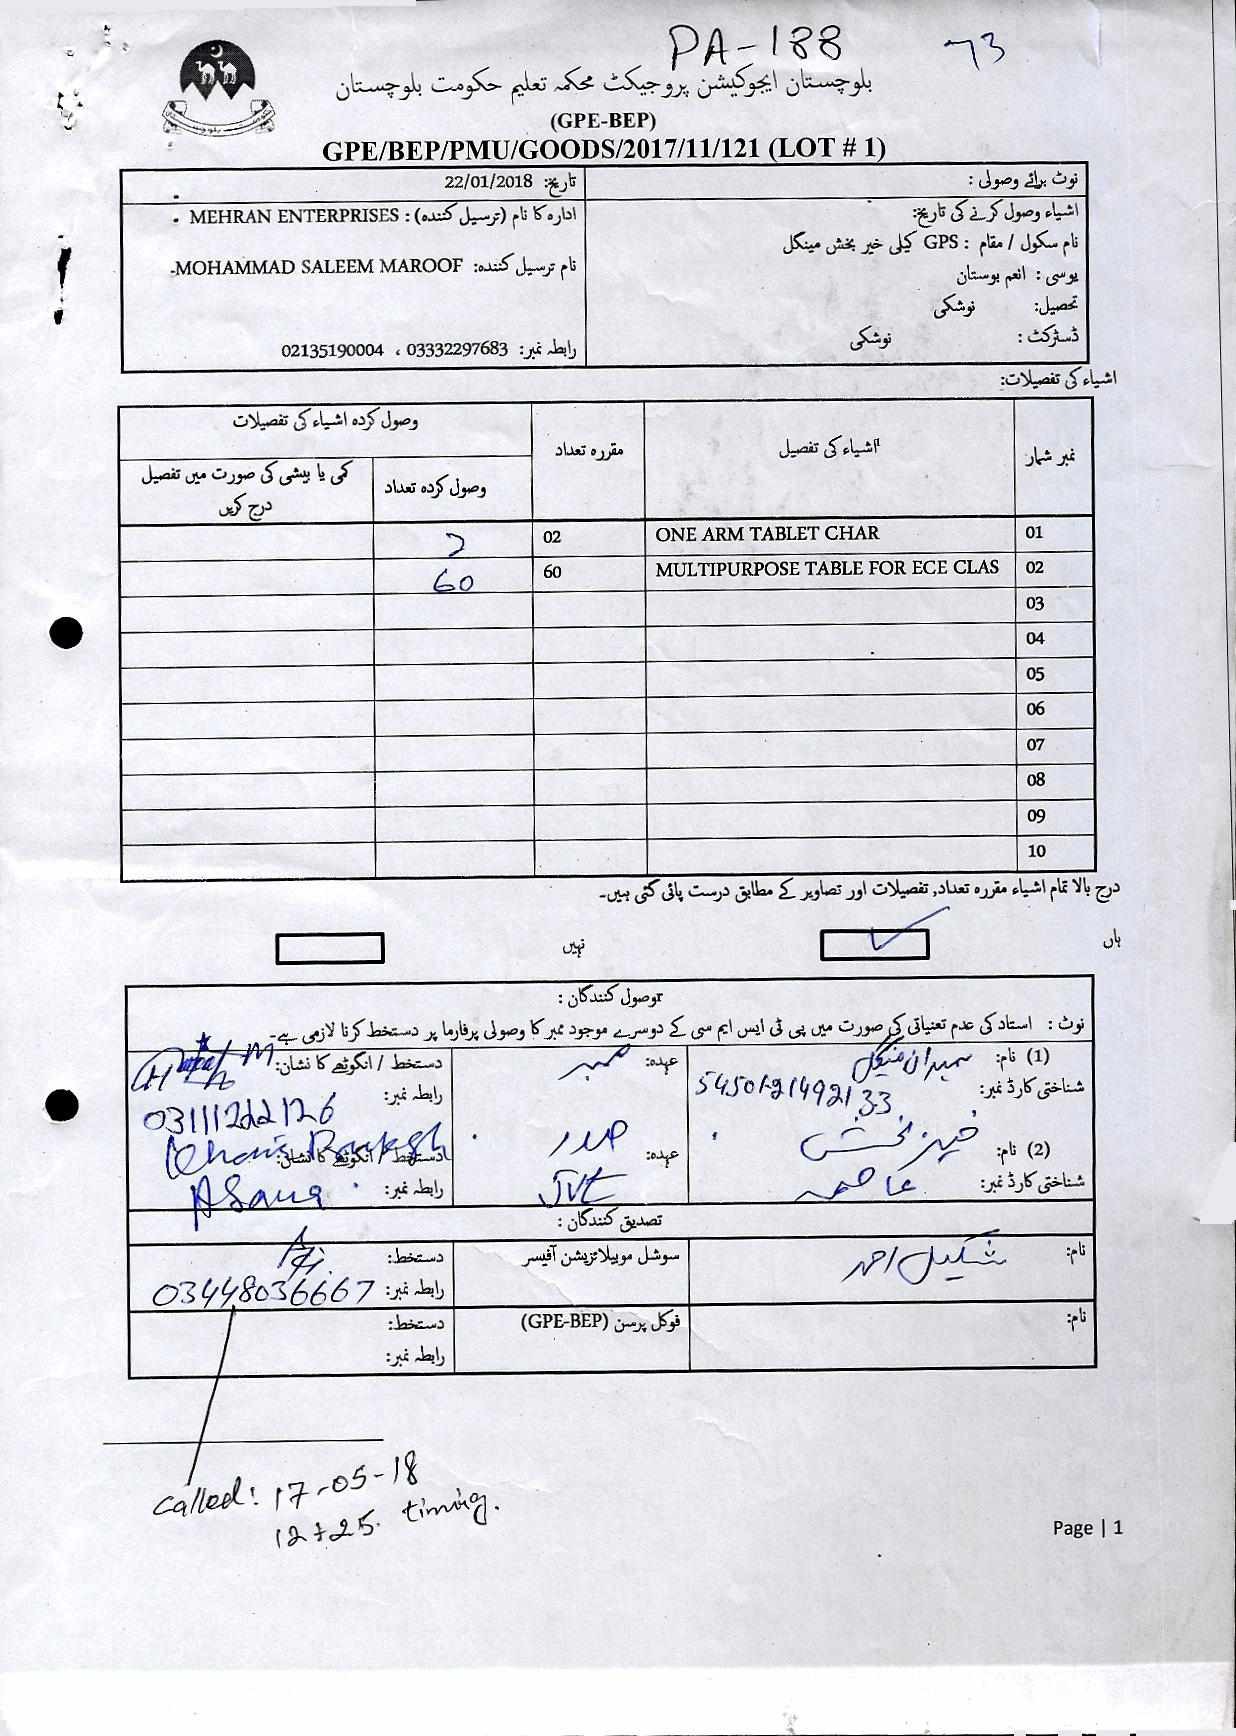 PA-188
73
بلوچستان ایجوکیشن پروجیکٹ محکمہ تعلیم حکومت بلوچستان
(GPE-BEP)
GPE/BEP/PMU/GOODS/2017/11/121 (LOT # 1)
نوٹ برائے وصولی :
تاریخ: 22/01/2018
اشیاء وصول کرنے کی تاریخ:
ادارہ کا نام (ترسیل کنندہ) : MEHRAN ENTERPRISES
نام سکول / مقام : GPS کیلی خیر بخش مینگل
نام ترسیل کنندہ: MOHAMMAD SALEEM MAROOF-
یوسی : انعم بوستان
تحصیل: نوشکی
ڈسٹرکٹ : نوشکی
رابطہ نمبر: 03332297683 ، 02135190004
اشیاء کی تفصیلات:
نمبر شمار اشیاء کی تفصیل مقررہ تعداد وصول کردہ اشیاء کی تفصیلات
وصول کردہ تعداد کمی یا بیشی کی صورت میں تفصیل درج کریں
01 ONE ARM TABLET CHAR 02 2
02 MULTIPURPOSE TABLE FOR ECE CLAS 60 60
03
04
05
06
07
08
09
10
درج بالا تمام اشیاء مقررہ تعداد, تفصیلات اور تصاویر کے مطابق درست پائی گئی ہیں۔
ہاں ✓ نہیں
وصول کنندگان :
نوٹ : استاد کی عدم تعنیاتی کی صورت میں پی ٹی ایس ایم سی کے دوسرے موجود ممبر کا وصولی پرفارما پر دستخط کرنا لازمی ہے۔
(1) نام: مینگل عہدہ: ممبر دستخط / انگوٹھے کا نشان:
شناختی کارڈ نمبر: 54501-2149213 3 رابطہ نمبر: 03111222126
(2) نام: خیر بخش عہدہ: صدر دستخط / انگوٹھے کا نشان:
شناختی کارڈ نمبر: عاصمہ JVT رابطہ نمبر: Asama
تصدیق کنندگان :
نام: شکیل احمد سوشل موبیلائزیشن آفیسر دستخط:
رابطہ نمبر: 03448036667
نام: فوکل پرسن (GPE-BEP) دستخط:
رابطہ نمبر:
called: 17-05-18
12:25 timing.
Page | 1